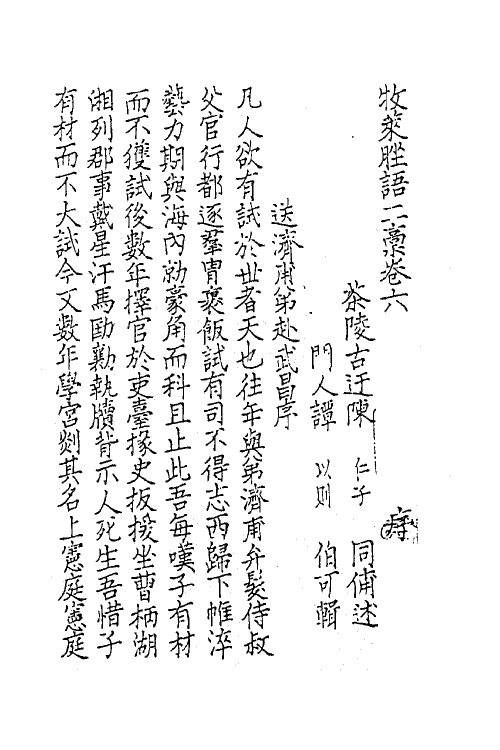 牧萊脞語二藁卷六
茶陵古迂陳 仁子 同俌述
門人譚 以則 伯可輯
送濟甫弟赴武昌序
凡人欲有試於世者天也往年與弟濟甫弁髮侍叔
父官行都逐羣胄褁飯試有司不得志西歸下帷淬
藝力期與海內勍豪角而科且止此吾每嘆子有材
而不獲試後數年擇官於吏臺掾史扳援坐曹柄湖
湘列郡事戴星汗馬勚勷執牘背示人死生吾惜子
有材而不大試今又數年學宮剡其名上憲庭憲庭